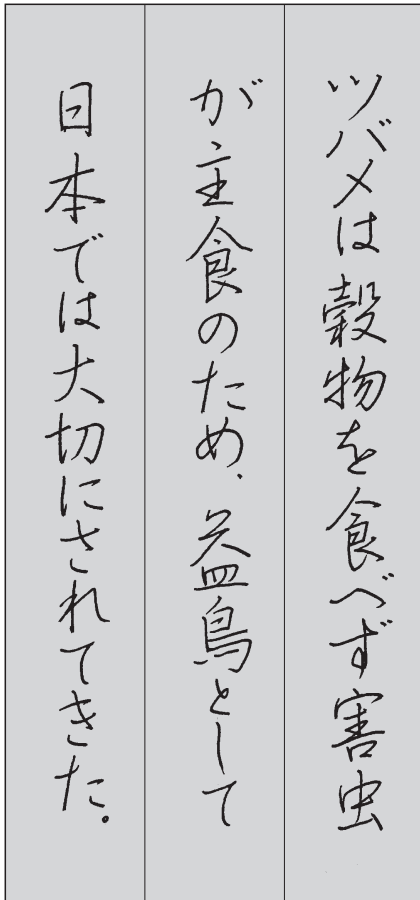 ツバメは穀物を食べず害虫
が主食のため、益鳥として
日本では大切にされてきた。